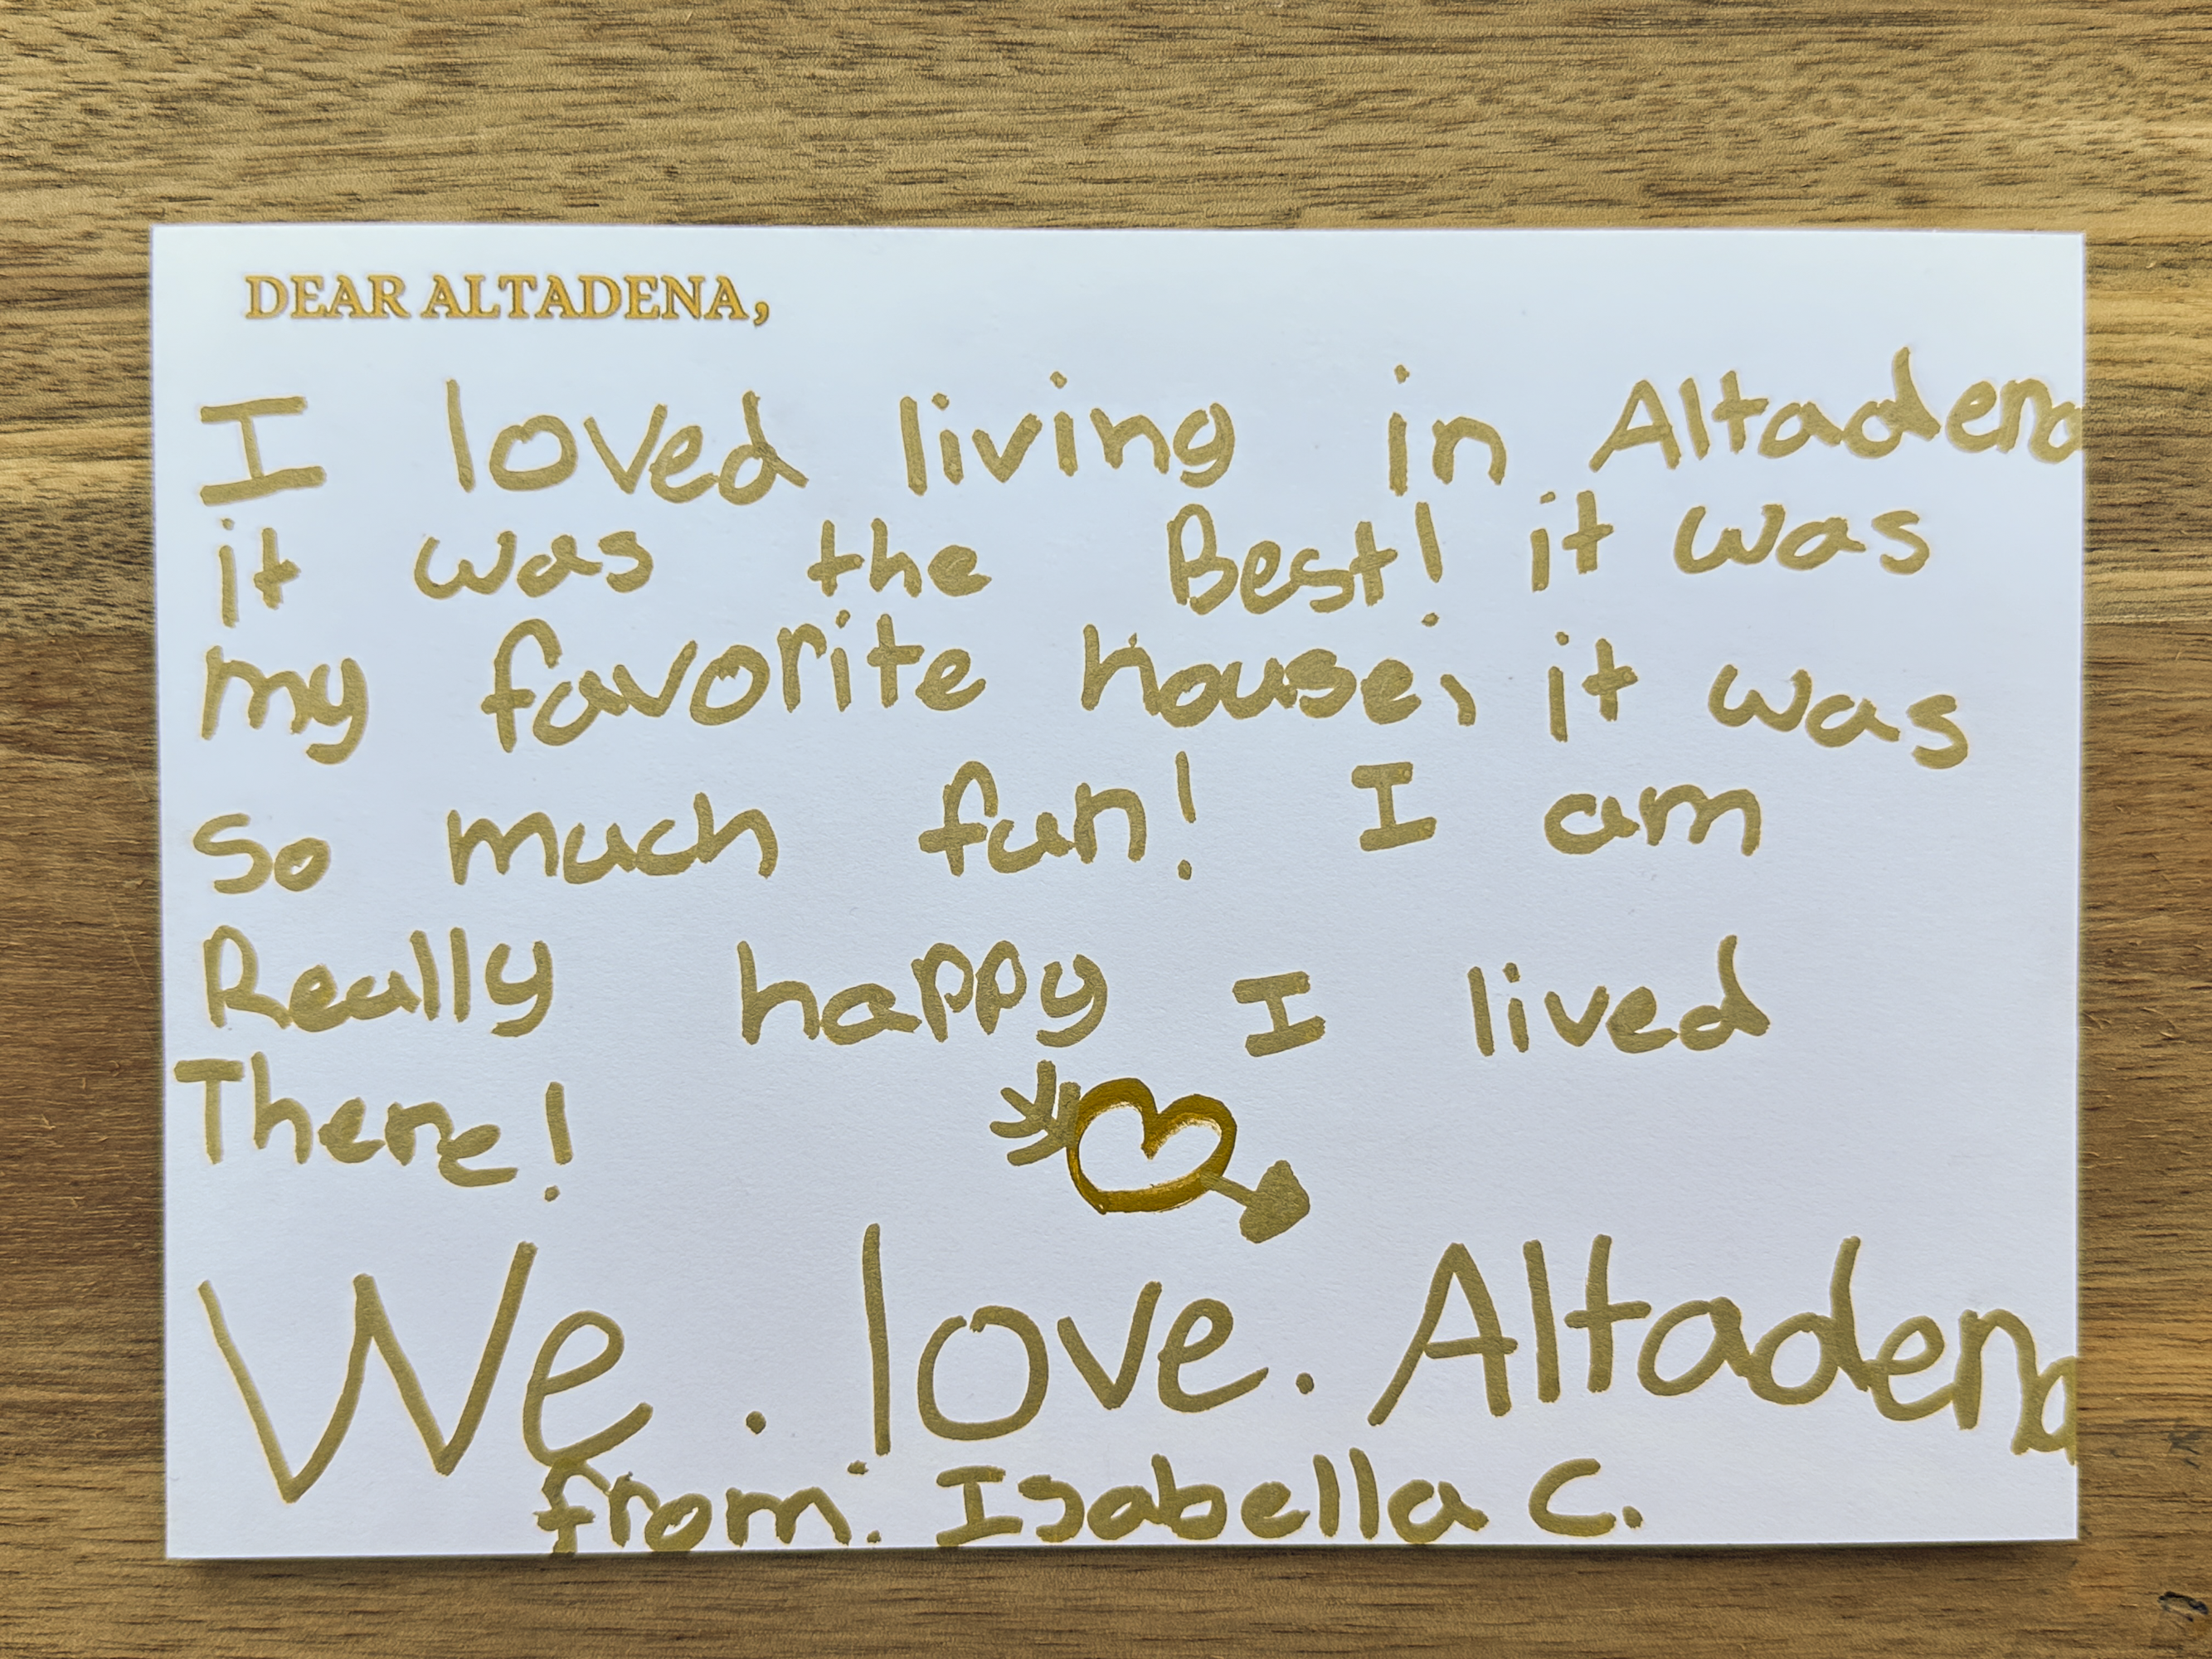 DEAR ALTADENA,
I loved living in Altadena
it was the Best! it was
my favorite house, it was
so much fun! I am
Really happy I lived
There!
We . love . Altadena
from: Isabella C.